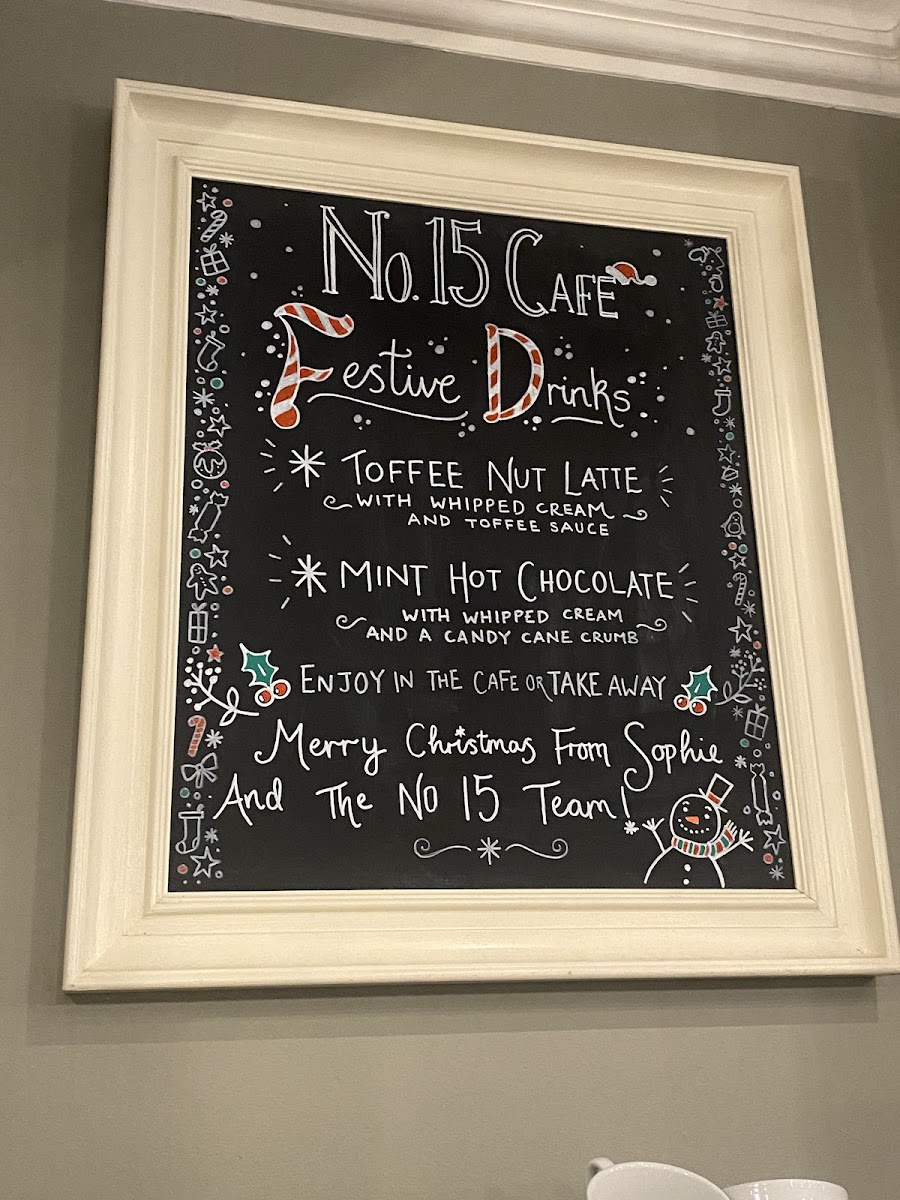 No.15 CAFE
Festive Drinks
TOFFEE NUT LATTE
WITH WHIPPED CREAM
AND TOFFEE SAUCE
MINT HOT CHOCOLATE
WITH WHIPPED CREAM
AND A CANDY CANE CRUMB
ENJOY IN THE CAFE OR TAKE AWAY
Merry Christmas From Sophie
And The No 15 Team!